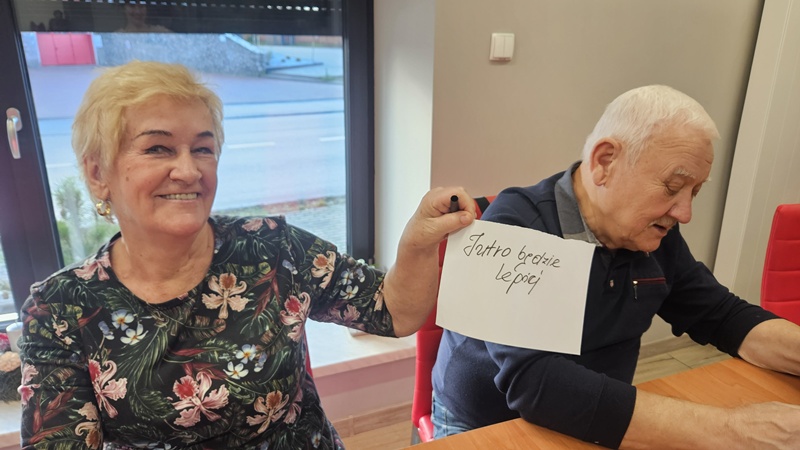 Jutro będzie
lepiej